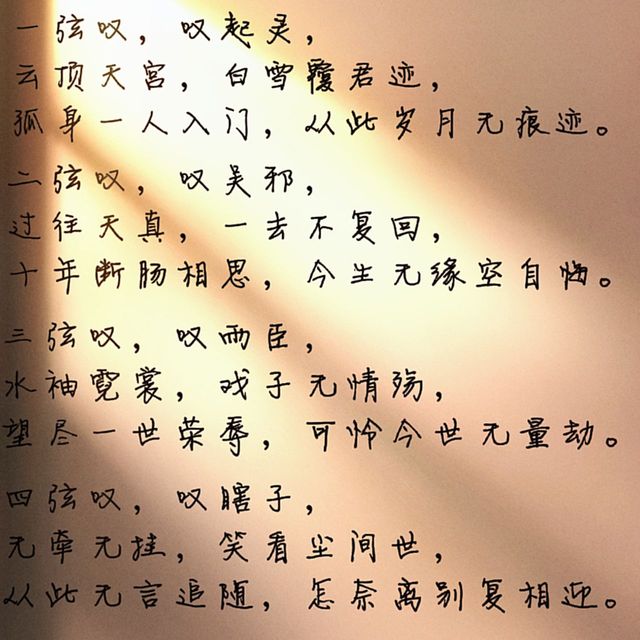 一弦叹，叹起灵，
云顶天宫，白雪覆君迹，
孤身一人入门，从此岁月无痕迹。
二弦叹，叹吴邪，
过往天真，一去不复回，
十年断肠相思，今生无缘空自悔。
三弦叹，叹雨臣，
水袖霓裳，戏子无情殇，
望尽一世荣辱，可怜今世无量劫。
四弦叹，叹瞎子，
无牵无挂，笑看尘间世，
从此无言追随，怎奈离别复相迎。